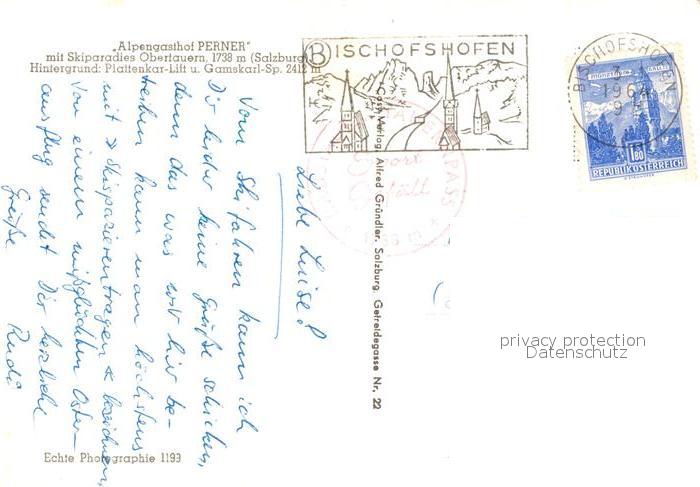 „Alpengasthof PERNER"
mit Skiparadies Obertauern, 1738 m (Salzburg)
Hintergrund: Plattenkar-Lift u. Gamskarl-Sp. 2412 m
BISCHOFSHOFEN
BISCHOFSHOFEN
1964
1.80
REPUBLIK ÖSTERREICH
Cosy-Verlag Alfred Gründler, Salzburg, Getreidegasse Nr. 22
Liebe Luise!
Vom Skifahren kann ich
Dir leider keine Grüße schicken,
denn das was wir hier be-
treiben kann man höchstens
mit »Skispazierentragen« bezeichnen,
Von einem mißglückten Oster-
ausflug sendet Dir herzliche
Grüße Rudi
privacy protection
Datenschutz
Echte Photographie 1193